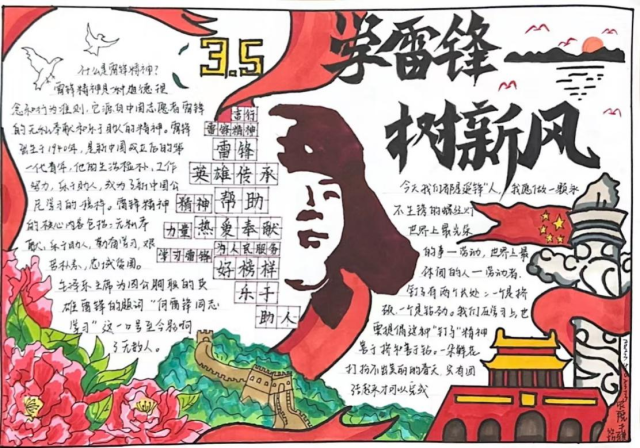 3.5
学雷锋
树新风
什么是雷锋精神?
雷锋精神是
念和行为准则,它源自中国志愿者雷锋
的无私奉献和乐于助人的精神。雷锋
出生于1940年,是新中国成立后的第
一代青年,他的生活俭朴,工作
努力,乐于助人,成为了新中国公
民学习的榜样。雷锋精神
的核心内容包括:无私奉
献、乐于助人、勤奋学习、艰
苦朴素、忠诚
毛泽东主席为因公殉职的英
雄雷锋的题词“向雷锋同志
学习”这一口号至今影响
了无数人。
雷锋精神
雷锋
英雄传承
精神 帮助
力量 热爱奉献
为人民服务
学习雷锋 好榜样
乐于
助人
今天我们都是"雷锋"人,我愿做一颗永
不生锈的螺丝钉
世界上最光荣
的事——劳动,世界上最
休闲的人——劳动者.
钉子有两个长处:一个是挤
一个是钻劲。我们在学习上也
要提倡这种"钉子"精神
善于挤和善于钻。一朵鲜花
打扮不出美丽的春天